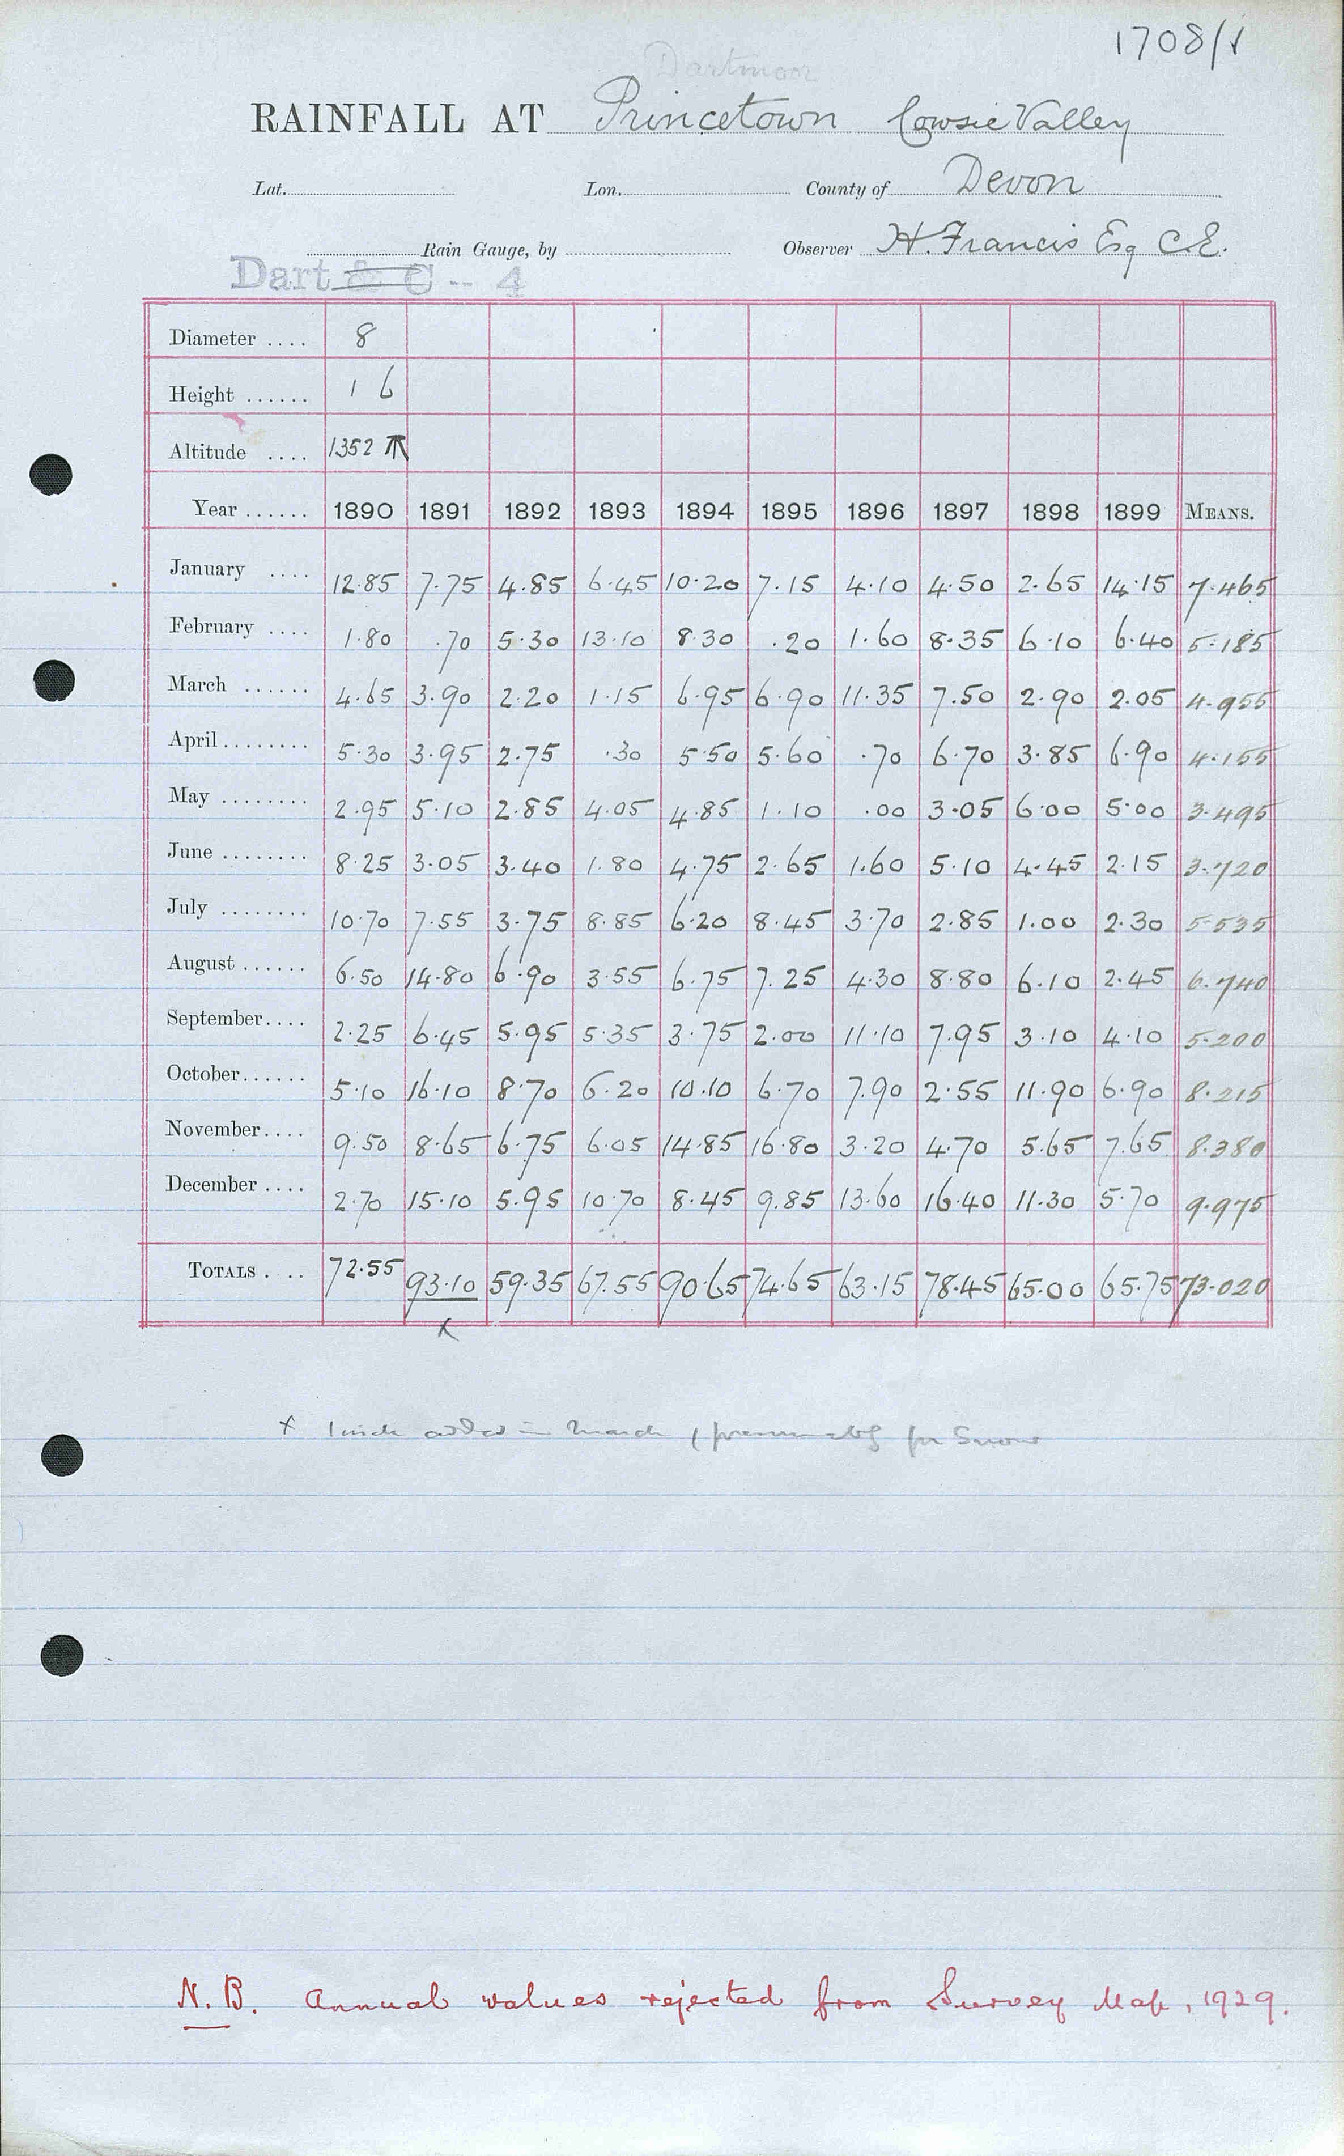 1708/1
Dartmoor
RAINFALL AT Princetown Cowsic Valley
Lat. Lon. County of Devon
Rain Gauge, by Observer H. Francis Esq C.E.
Dart & C -- 4
Diameter .... 8
Height ...... 1 6
Altitude .... 1352 ↑
Year ...... 1890 1891 1892 1893 1894 1895 1896 1897 1898 1899 MEANS.
January .... 12.85 7.75 4.85 6.45 10.20 7.15 4.10 4.50 2.65 14.15 7.465
February .... 1.80 .70 5.30 13.10 8.30 .20 1.60 8.35 6.10 6.40 5.185
March ...... 4.65 3.90 2.20 1.15 6.95 6.90 11.35 7.50 2.90 2.05 4.955
April ........ 5.30 3.95 2.75 .30 5.50 5.60 .70 6.70 3.85 6.90 4.155
May ........ 2.95 5.10 2.85 4.05 4.85 1.10 .00 3.05 6.00 5.00 3.495
June ........ 8.25 3.05 3.40 1.80 4.75 2.65 1.60 5.10 4.45 2.15 3.720
July ........ 10.70 7.55 3.75 8.85 6.20 8.45 3.70 2.85 1.00 2.30 5.535
August ...... 6.50 14.80 6.90 3.55 6.75 7.25 4.30 8.80 6.10 2.45 6.740
September .... 2.25 6.45 5.95 5.35 3.75 2.00 11.10 7.95 3.10 4.10 5.200
October ...... 5.10 16.10 8.70 6.20 10.10 6.70 7.90 2.55 11.90 6.90 8.215
November .... 9.50 8.65 6.75 6.05 14.85 16.80 3.20 4.70 5.65 7.65 8.380
December .... 2.70 15.10 5.95 10.70 8.45 9.85 13.60 16.40 11.30 5.70 9.975
TOTALS . .. 72.55 93.10 59.35 67.55 90.65 74.65 63.15 78.45 65.00 65.75 73.020
x
x 1 inch added in March (presumably for Snow
N.B. Annual values rejected from Survey Map, 1929.